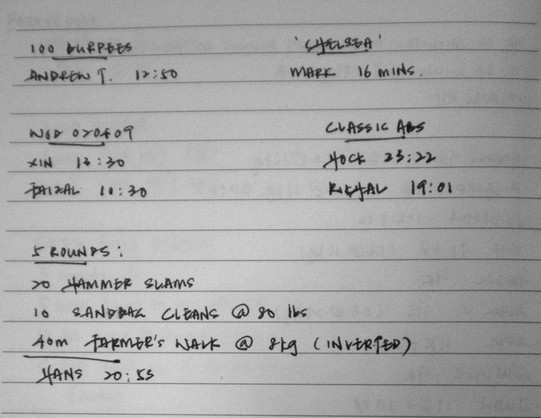 100 BURPEES
ANDREW T. 12:50
'CHELSEA'
MARK 16 MINS.
WOD 020409
XIN 13:30
FAIZAL 10:30
CLASSIC ABS
HOCK 23:22
19:01
5 ROUNDS:
20 HAMMER SLAMS
10 SANDBAG CLEANS @ 80 lbs
40m FARMER'S WALK @ 8kg (INVERTED)
HANS 20:55